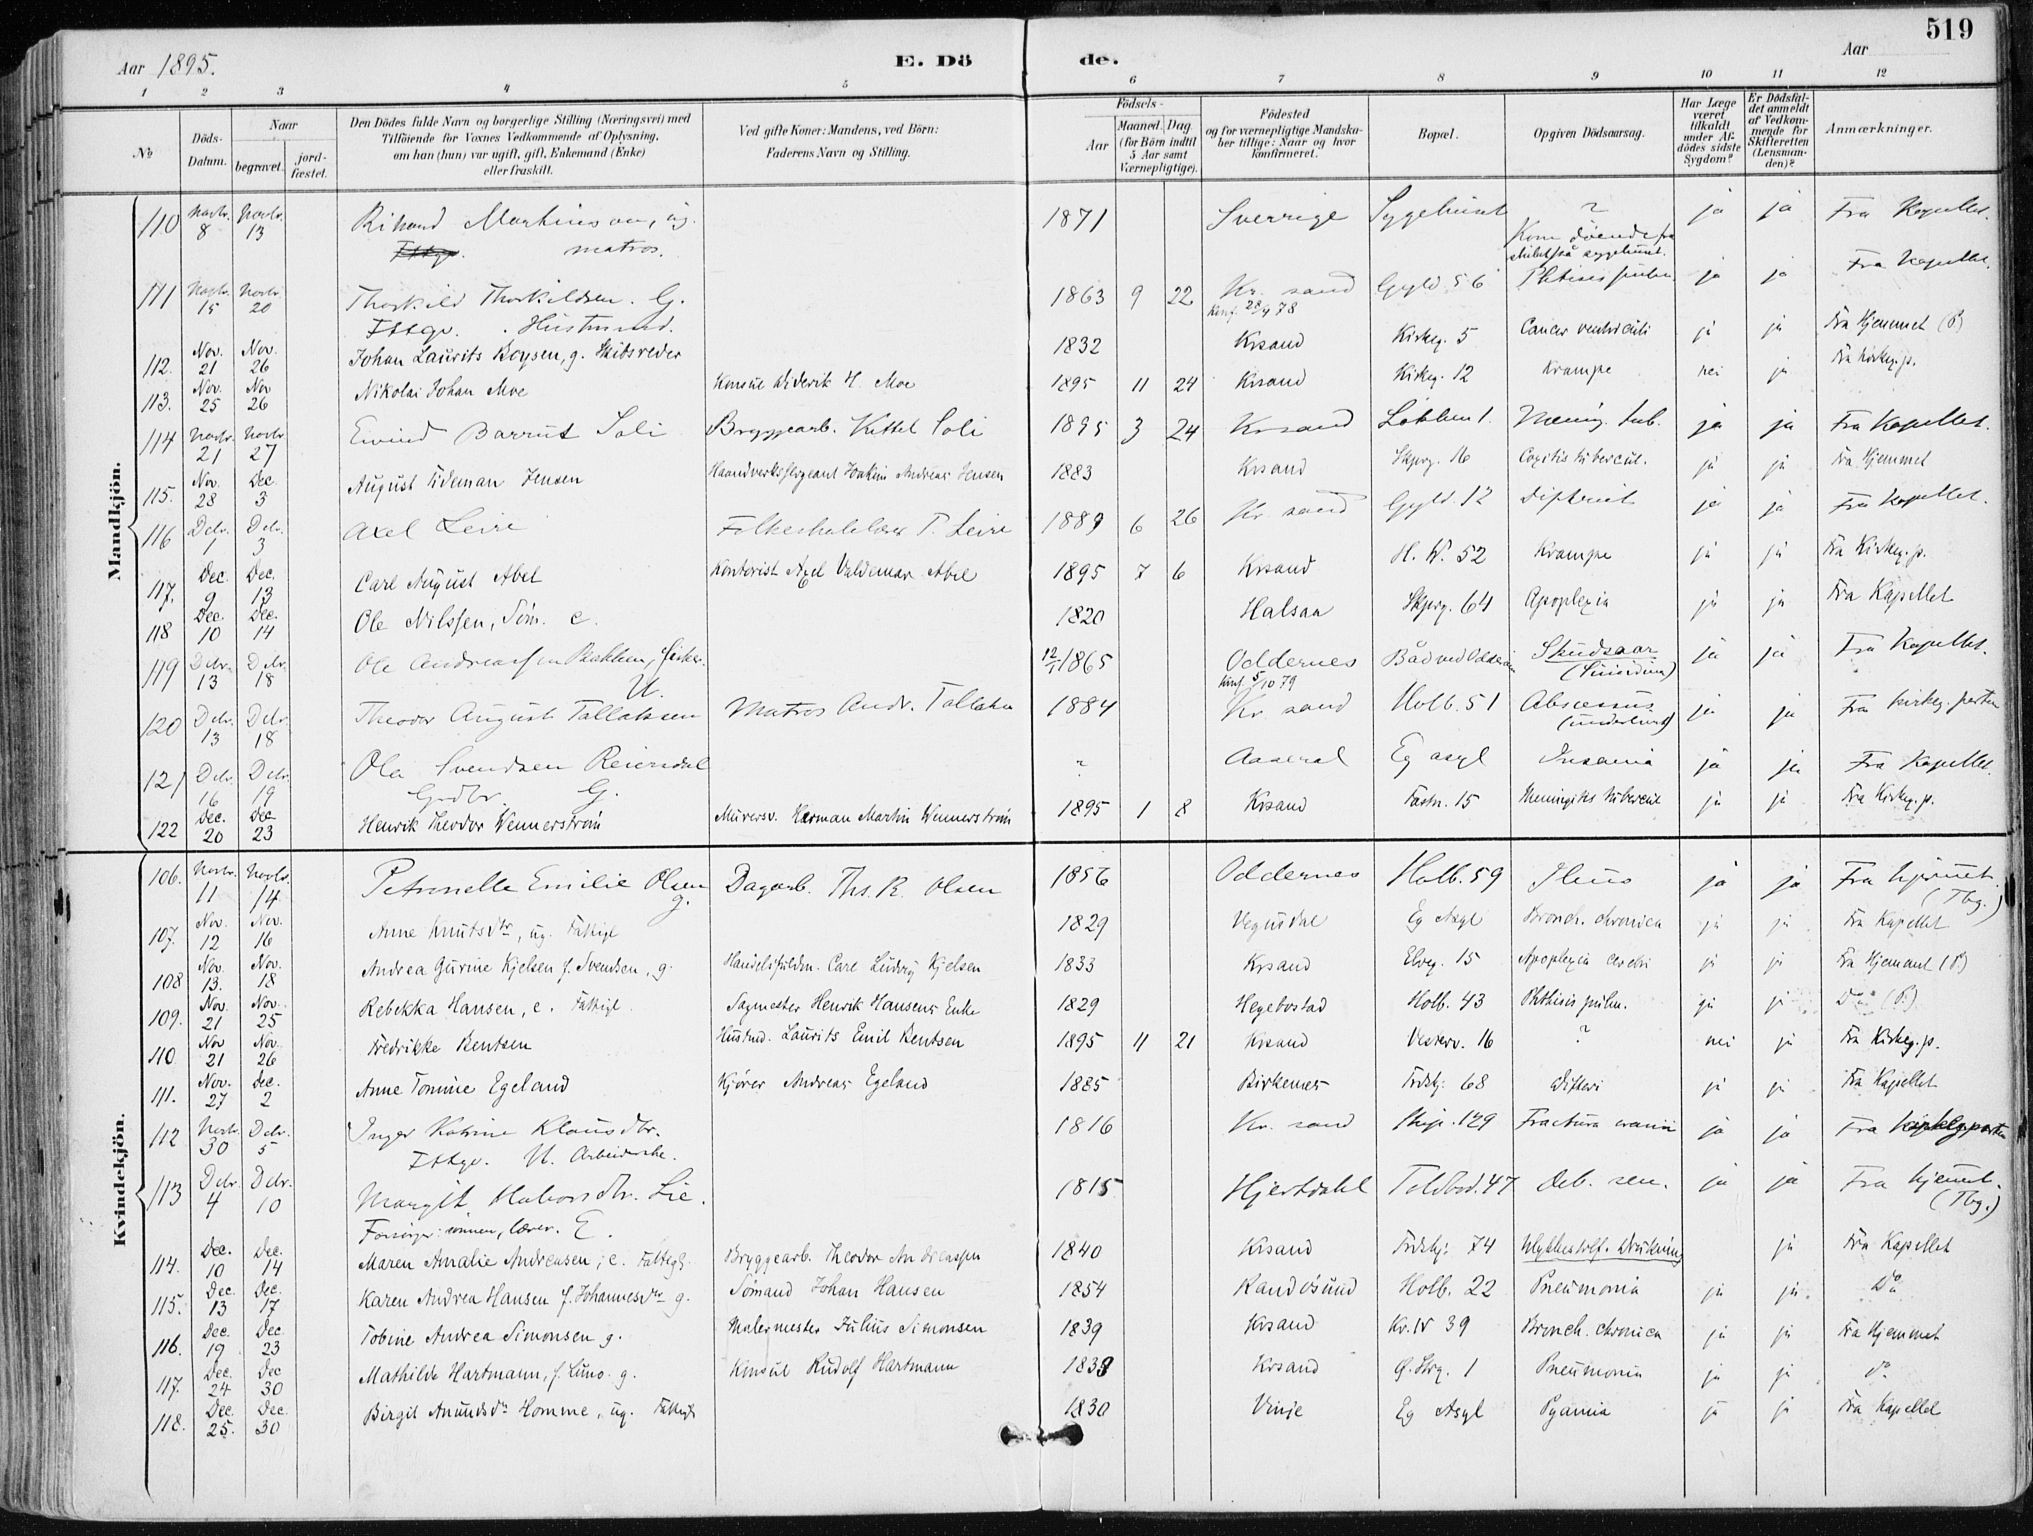 519
Aar 1895.
E. Dö
de.
Aar
1 2 3 4 5 6 7 8 9 10 11 12
No
Döds-Datum.
Naar
begravet.
jord-fæstet.
Den Dödes fulde Navn og borgerlige Stilling (Næringsvei) med
Tilföiende for Voxnes Vedkommende af Oplysning,
om han (hun) var ugift, gift, Enkemand (Enke)
eller fraskilt.
Ved gifte Koner: Mandens, ved Börn:
Faderens Navn og Stilling.
Födsels-
Aar
Maaned. Dag.
(for Börn indtil
5 Aar samt
Værnepligtige).
Födested
og for værnepligtige Mandska-
ber tillige: Naar og hvor
konfirmeret.
Bopæl.
Opgiven Dödsaarsag.
Har Læge
været
tilkaldt
under Af-
dödes sidste
Sygdom?
Er Dödsfal-
det anmeldt
af Vedkom-
mende for
Skifteretten
(Lensman-
den)?
Anmærkninger.
Mandkjön.
110 Novbr. 8 Novbr. 13 Rikard Martinsson, ug. 1871 Sverrige Sygehuset ? ja ja Fra Kapellet.
matros. Kom döende fra
skibet på sygehuset.
111 Novbr. 15 Novbr. 20 Thorkild Thorkildsen. G. 1863 9 22 Kr. sand Gyld. 56 Phtisis pulm. ja ja Fra Kapellet.
Fttgv. Husmand. Konf. 28/9 78
112. Nov. 21 Nov. 26 Johan Laurits Boysen, g. Skibsreder 1832 Krsand Kirkeg. 5 Cancer ventriculi ja ja Fra Hjemmet (P)
113. Nov. 25 Nov 26 Nikolai Johan Moe Konsul Diderik H. Moe 1895 11 24 Krsand Kirkeg. 12 Krampe nei ja Fra Kirkeg.p.
114 Novbr. 21 Novbr 27 Eivind Barrut Soli Bryggearb. Kittel Soli 1895 3 24 Krsand Lökken 1. Mening. tub. ja ja Fra Kapellet.
115. Nov. 28 Dec. 3 August Tideman Jensen Haandverkssergeant Joakim Andreas Jensen 1883 Krsand Skprg. 16 Coxitis tubercul. ja ja Fra Hjemmet
116 Debr. 1 Debr. 3 Axel Leire Folkeskolelærer T. Leire 1889 6 26 Kr. sand Gyld. 12 Difterit ja ja Fra Kapellet.
117. Dec. 9 Dec. 13 Carl August Abel Kontorist Axel Valdemar Abel 1895 7 6 Krsand H. W. 52 Krampe ja ja Fra Kirkeg.p.
118 Dec. 10 Dec. 14 Ole Nilssen, Söm. e. 1820 Halsaa Skprg. 64 Apoplexia ja ja Fra Kapellet
119 Debr. 13 Debr. 18 Ole Andreassen Bakken, fisker. 12/1 1865 Oddernes Båd ved Skudsaar ja ja Fra Kapellet.
U. Konf. 5/10 79 (Suicidium)
120 Debr. 13 Debr. 18 Theodor August Tallaksen Matros Andr. Tallaksen 1884 Kr. sand Holb. 51 Abscessus ja ja Fra kirkeg. porten
121 Debr. 16 Debr. 19 Ola Svendsen Reiersdal ? Aaseral Eg asyl Insania ja ja Fra Kapellet.
Grdbr. G.
122 Dec. 20 Dec. 23 Henrik Theodor Wennerström Murersv. Herman Martin Wennerström 1895 1 8 Krsand Fæstn. 15 Meningitis tubercul ja ja Fra Kirkeg.p.
Kvindekjön.
106. Novbr. 11 Novbr. 14 Petronelle Emilie Olsen g. Dagarb. Ths. R. Olsen 1856 Oddernes Holb. 59 Ileus ja ja Fra hjemmet.
(Tbg.)
107. Nov. 12 Nov. 16 Anne Knutsdtr, ug. Fattigl 1829 Vegusdal Eg Asyl Bronch. chronica ja ja Fra Kapellet
108 Nov. 13. Nov. 18 Andrea Gurine Kjelsen f. Svendsen, g. Handelsfuldm. Carl Ludvig Kjelsen 1833 Krsand Elveg. 15 Apoplexia cerebri ja ja Fra Hjemmet (P)
109. Nov. 21 Nov. 25 Rebekka Hansen, e. Fattigl. Sagmester Henrik Hansens Enke 1829 Hegebostad Holb. 43 Phthisis pulm. ja ja Do (P.)
110 Nov 21 Nov. 26 Fredrikke Bentsen Hustmd. Laurits Emil Bentsen 1895 11 21 Krsand Vesterv. 16 ? nei ja Fra Kirkeg.p.
111. Nov. 27 Dec. 2 Anne Tomine Egeland Kjörer Andreas Egeland 1885 Birkenes Frdskj. 68 Difteri ja ja Fra Kapellet
112 Novbr. 30 Debr. 5 Inger Katrine Klausdtr. 1816 Kr. sand Skip. 129 Fractura cranii ja ja Fra kirkegporten
Fttgv. U. Arbeiderske.
113 Debr. 4 Debr. 10 Margit Halvorsdtr. Lie. 1815 Hjertdahl Toldbod. 47 Deb. sen. ja ja Fra hjemmet.
Forsörger: sönnen, lærer. E. (Tbg.)
114. Dec. 10 Dec. 14 Maren Amalie Andreasen, e. Fattigl. Bryggearb. Theodor Andreassen 1840 Krsand Frdskj. 74 Ulykkestilf. Drukning ja Fra Kapellet
115. Dec. 13 Dec. 17 Karen Andrea Hansen f. Johannesdtr g. Sömand Johan Hansen 1854 Randösund Holb. 22 Pneumonia ja ja. Do
116. Dec. 19 Dec. 23 Tobine Andrea Simonsen g. Malermester Julius Simonsen 1839 Krsand Kr. W 39 Bronch. chronica ja ja Fra Hjemmet
117. Dec. 24 Dec 30 Mathilde Hartmann, f. Luno. g. Konsul Rudolf Hartmann 1838 Krsand Ø. Strg. 1 Pneumonia ja ja do
118. Dec. 25. Dec. 30 Birgit Anundsdtr Homme, ug. Fattigl 1830 Vinje Eg Asyl Pyæmia ja ja Fra Kapellet